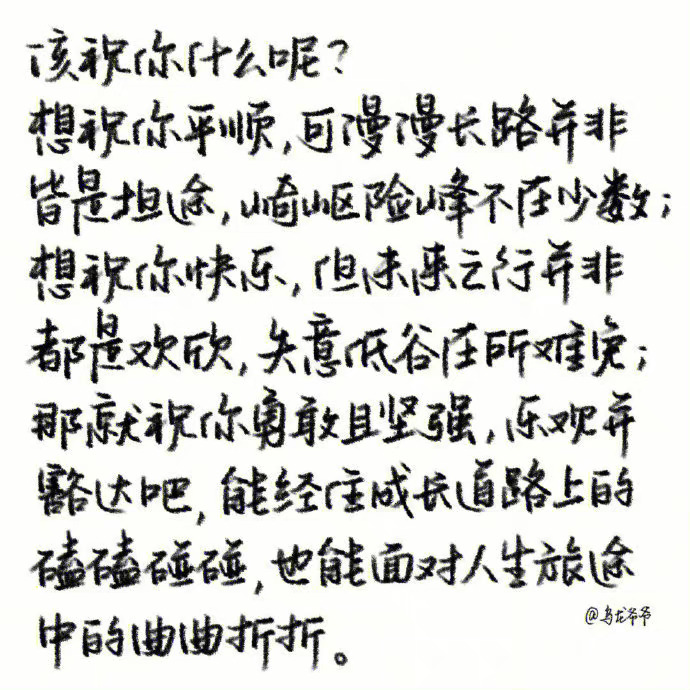 该祝你什么呢?
想祝你平顺,可漫漫长路并非
皆是坦途,崎岖险峰不在少数;
想祝你快乐,但未来之行并非
都是欢欣,失意低谷在所难免;
那就祝你勇敢且坚强,乐观并
豁达吧,能经住成长道路上的
磕磕碰碰,也能面对人生旅途
中的曲曲折折。
@乌龙爷爷